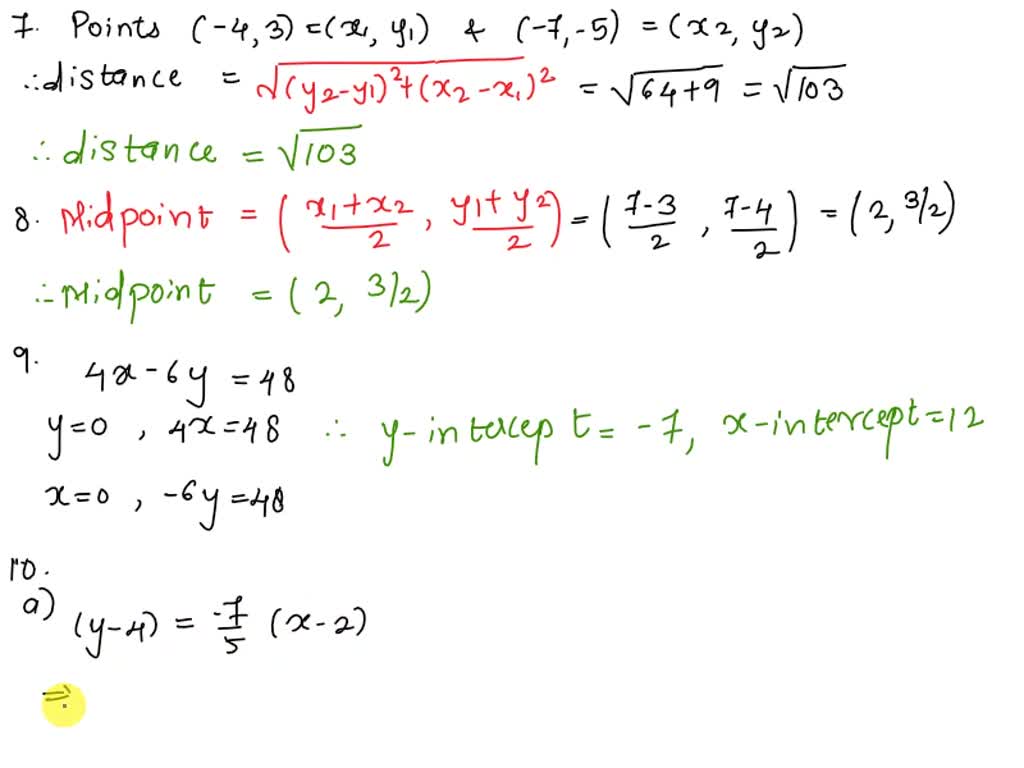 7. Points (-4,3)=(x1, y1) & (-7,-5) = (x2, y2)
∴distance = √(y2-y1)²+(x2-x1)² = √64+9 = √103
∴ distance = √103
8. Midpoint = (x1+x2/2, y1+y2/2) = (7-3/2, 7-4/2) = (2, 3/2)
∴Midpoint = (2, 3/2)
9. 4x-6y = 48
y=0, 4x=48 ∴ y-intercept = -7, x-intercept=12
x=0, -6y=48
10.
a) (y-4) = -7/5 (x-2)
⇒